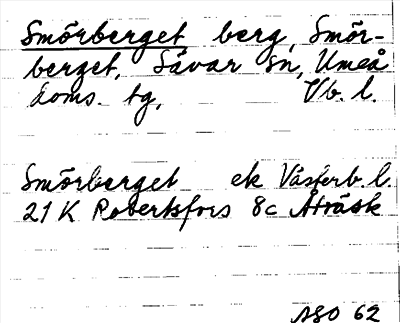 Smörberget berg, Smör-
berget, Sävar sn, Umeå
doms. tg, Vb. l.
Smörberget ek Västerb. l.
21 K Robertsfors 8c Åträsk
ASO 62